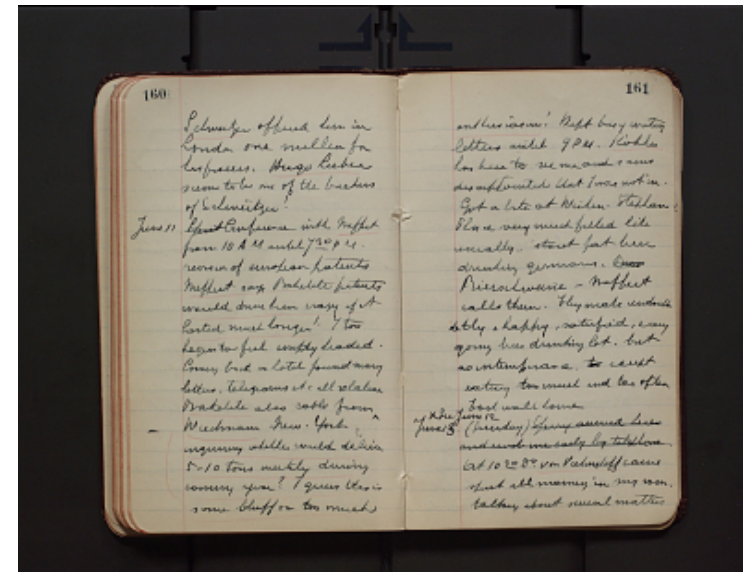 160
Schweitzer offered him in
London one million for
his process. Hugo Lieber
seem to be one of the backers
of Schweitzer!
June 11 Spent Conference with Maffat
from 10 A M until 7 30 P M.
review of european patents
Maffat says Bakelite patents
would drive him crazy if it
lasted much longer! I too
began to feel empty headed.
Coming back in hotel found many
letters, telegrams etc all relative
Bakelite also cable from
Wiechmann New-York
inquiring whether could deliver
5-10 tons weekly during
coming year? I guess this is
some bluff or too much
161
enthusiasm! Kept busy writing
letters until 9 P M.
has been to see me and seems
disappointed that I was not in.
Got a bite at
Place very much filled like
usually. stout fat beer
drinking germans.
Bierschweine - Maffat
calls them. They make undoub
tedly a happy, satisfied, easy
going beer drinking lot. but
no intemperance, to except
eating too much and too often
Took walk home.
June 12
(Sunday)
and us me early by telephone.
At 10 30 Dr von came
spent all morning in my room,
talking about several matters